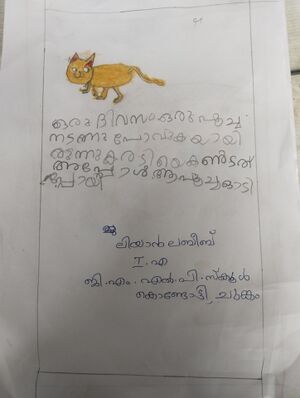 ഒരു ദിവസം ഒരു പൂച്ച
നടന്നു പോവുകയായി
രുന്നു കരടിയെ കണ്ടത്
അപ്പോൾ ആ പൂച്ച ഓടി
പ്പോയി
ലിയാൻ ലബീബ്
I. എ
ജി. എം. എൽ. പി. സ്കൂൾ
കൊണ്ടോട്ടി, ചുക്കം